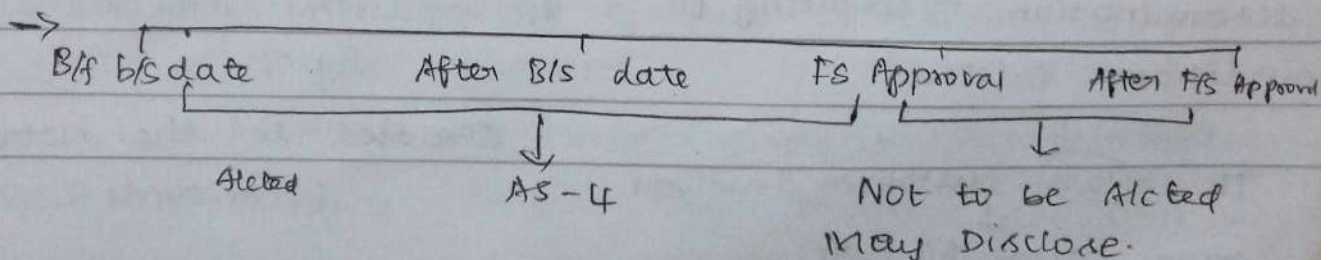 B/f b/s date After B/s date FS Approval After F/S Approval
A/cted AS-4 Not to be A/cted
May Disclose.